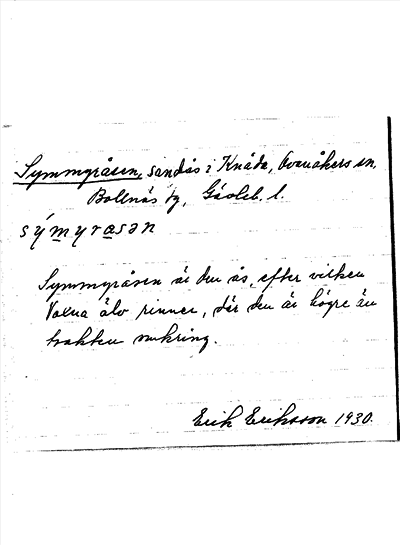 Symmyråsen, sandås i Knåda, Ovanåkers sn,
Bollnäs tg, Gävleb. l.
sýmyrasən
Symmyråsen är den ås, efter vilken
Voxna älv rinner, där den är högre än
trakten omkring.
Erik Eriksson 1930.